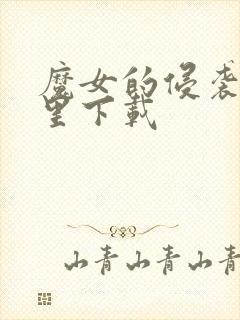 魔女的侵袭
里下载
山青山青山青